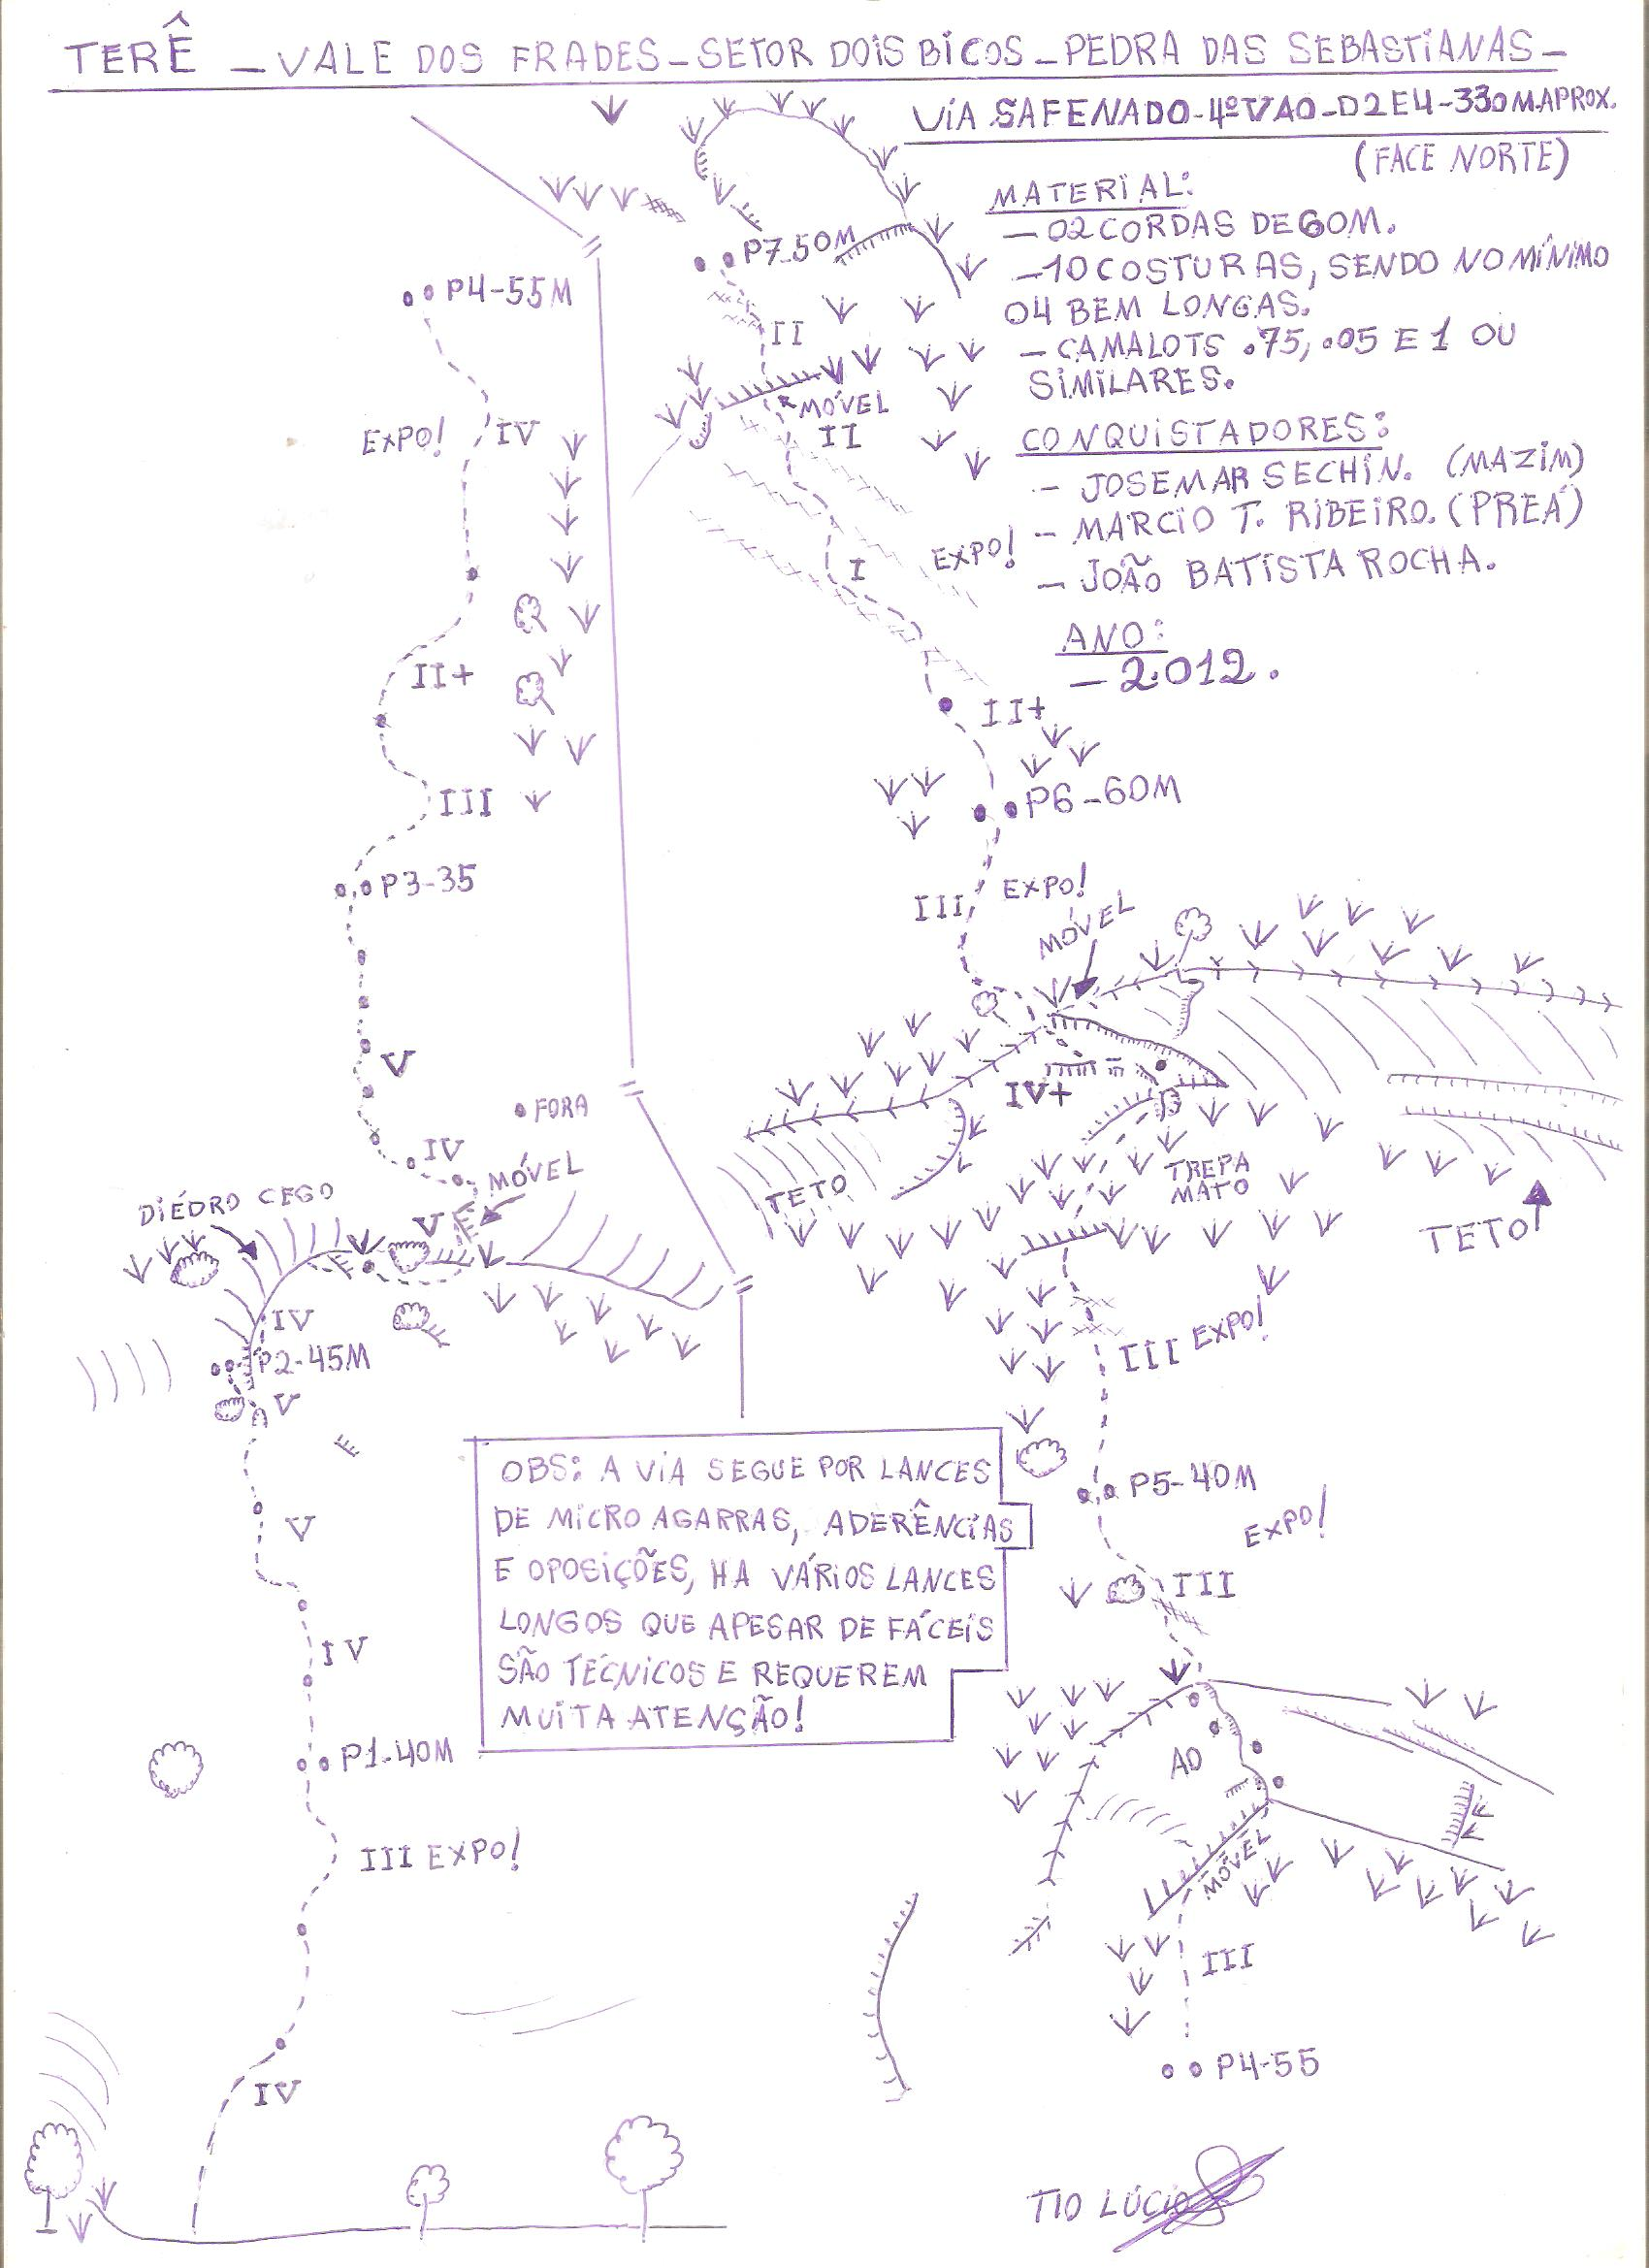 TERÊ – VALE DOS FRADES – SETOR DOIS BICOS – PEDRA DAS SEBASTIANAS –
VIA SAFENADO - 4º VAO - D2 E4 - 330 M.APROX.
(FACE NORTE)
MATERIAL:
– 02 CORDAS DE 60M.
– 10 COSTURAS, SENDO NO MÍNIMO
04 BEM LONGAS.
– CAMALOTS .75, .05 E 1 OU
SIMILARES.
CONQUISTADORES:
– JOSEMAR SECHIN. (MAZIM)
– MARCIO T. RIBEIRO. (PREÁ)
– JOÃO BATISTA ROCHA.
ANO:
– 2.012.
P4-55M
EXPO! IV
II+
III
P3-35
V
FORA
IV
MÓVEL
DIÉDRO CEGO
V
IV
P2-45M
V
V
IV
P1-40M
III EXPO!
IV
P7-50M
II
MÓVEL
II
I
EXPO!
II+
P6-60M
III EXPO!
MÓVEL
IV+
TETO
TREPA
MATO
TETO
III EXPO!
P5-40M
EXPO!
III
A0
MÓVEL
III
P4-55
OBS: A VIA SEGUE POR LANCES
DE MICRO AGARRAS, ADERÊNCIAS
E OPOSIÇÕES, HA VÁRIOS LANCES
LONGOS QUE APESAR DE FÁCEIS
SÃO TÉCNICOS E REQUEREM
MUITA ATENÇÃO!
TIO LÚCIO